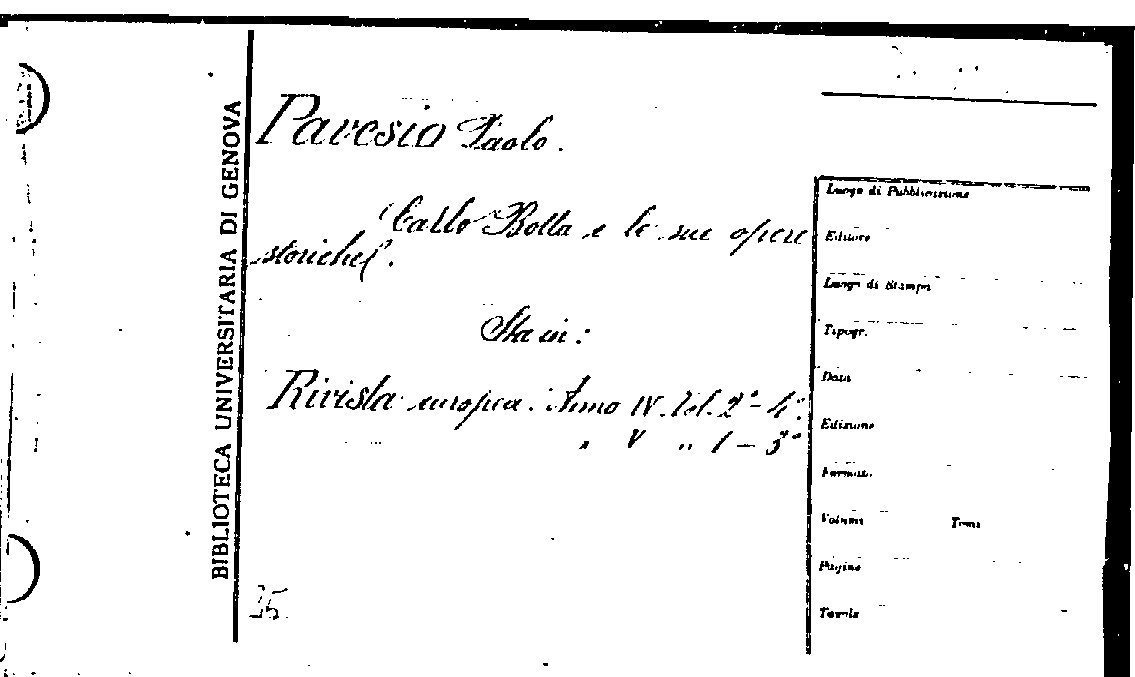 BIBLIOTECA UNIVERSITARIA DI GENOVA
Pavesio Paolo.
Carlo Botta e le sue opere
storiche.
Sta in:
Rivista europea. Anno IV. Vol. 2°-4°.
" V " 1-3°
Luogo di Pubblicazione
Editore
Luogo di Stampa
Tipogr.
Data
Edizione
Formato.
Volumi Tomi
Pagine
Tavole